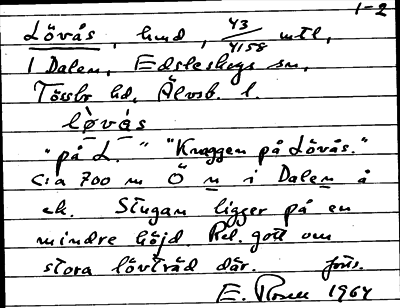 1-2
Lövås, hmd, 43/4158 mtl,
I Dalen, Edsleskogs sn,
Tössbo hd, Älvsb. l.
lø̀vás
"på L." "Knaggen på Lövås."
c:a 700 m Ö n i Dalen å
ek. Stugan ligger på en
mindre höjd. Rel. gott om
stora lövträd där.förs.
E. Rosell 1964